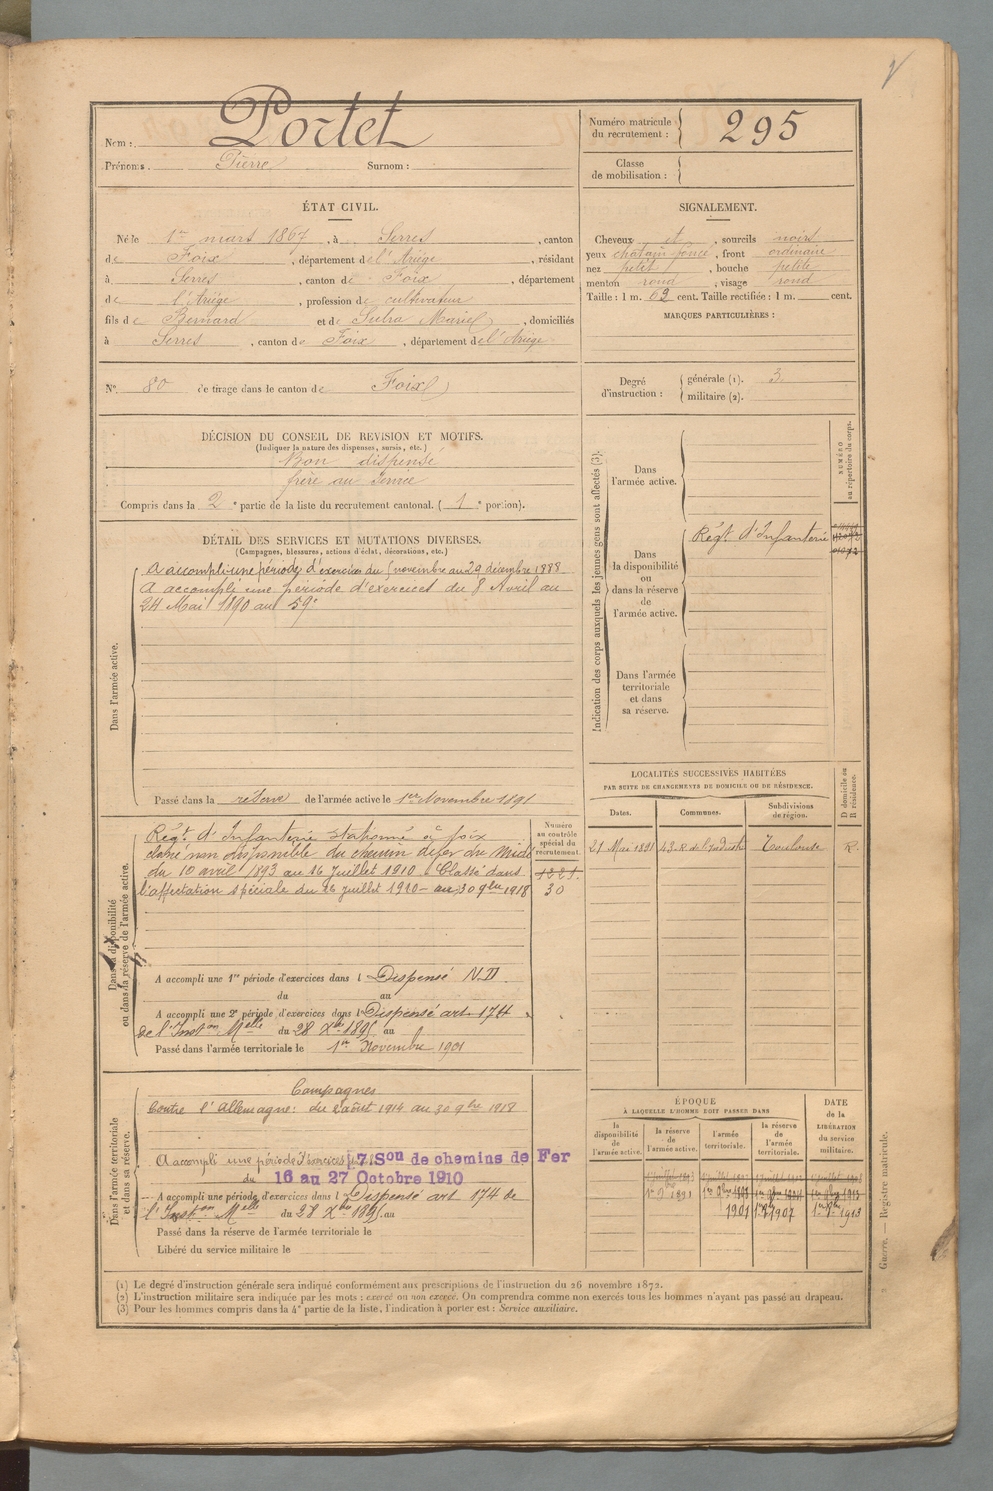 Nom : Portet
Prénoms . Pierre Surnom :
Numéro matricule
du recrutement : 295
Classe
de mobilisation :
ÉTAT CIVIL.
Né le 1er mars 1867, à Serres, canton
de Foix, département de l'Ariège, résidant
à Serres, canton de Foix, département
de l'Ariège, profession de cultivateur
fils de Bernard et de Sutra Marie, domiciliés
à Serres, canton de Foix, département de l'Ariège
SIGNALEMENT.
Cheveux et, sourcils noirs
yeux chatain foncé, front ordinaire
nez petit, bouche petite
menton rond, visage rond
Taille : 1 m. 63 cent. Taille rectifiée : 1 m. cent.
MARQUES PARTICULIÈRES :
N° 80 de tirage dans le canton de Foix
Degré
d'instruction :
générale (1). 3
militaire (2).
DÉCISION DU CONSEIL DE REVISION ET MOTIFS.
(Indiquer la nature des dispenses, sursis, etc.)
Bon dispensé
frère au service
Compris dans la 2e partie de la liste du recrutement cantonal. (1e portion).
DÉTAIL DES SERVICES ET MUTATIONS DIVERSES.
(Campagnes, blessures, actions d'éclat, décorations, etc.)
Dans l'armée active.
A accompli une période d'exercices du novembre au 29 décembre 1888
A accompli une période d'exercices du 8 Avril au
24 Mai 1890 au 59e
Passé dans la réserve de l'armée active le 1er Novembre 1891
Indication des corps auxquels les jeunes gens sont affectés (3).
NUMÉRO
au répertoire du corps.
Dans
l'armée active.
Dans
la disponibilité
ou
dans la réserve
de
l'armée active.
Régt d'Infanterie
Dans l'armée
territoriale
et dans
sa réserve.
Dans la disponibilité
ou dans la réserve de l'armée active.
Numéro
au contrôle
spécial du
recrutement.
1221
30
Régt d'Infanterie stationné à foix
classé non disponible du chemin de fer du Midi
du 10 avril 1893 au 16 Juillet 1910 Classé dans
l'affectation spéciale du 16 juillet 1910 au 30 9bre 1918
A accompli une 1re période d'exercices dans l Dispensé N.D
du au
A accompli une 2e période d'exercices dans l Dispensé art. 174
de l'Inston Melle du 28 Xbre 1895 au
Passé dans l'armée territoriale le 1er Novembre 1901
LOCALITÉS SUCCESSIVES HABITÉES
PAR SUITE DE CHANGEMENTS DE DOMICILE OU DE RÉSIDENCE.
D domicile ou
R résidence.
Dates. Communes. Subdivisions
de région.
21 Mai 1891 43 R de l'Industrie Toulouse R.
Dans l'armée territoriale
et dans sa réserve.
Campagnes
Contre l'Allemagne : du 2 août 1914 au 30 9bre 1918
A accompli une période d'exercices 7. Son de chemins de Fer
du 16 au 27 Octobre 1910
A accompli une période d'exercices dans l Dispensé art 174 de
l'Inston Melle du 28 Xbre 1895 au
Passé dans la réserve de l'armée territoriale le
Libéré du service militaire le
ÉPOQUE
À LAQUELLE L'HOMME DOIT PASSER DANS
DATE
de la
LIBÉRATION
du service
militaire.
la
disponibilité
de
l'armée active.
la réserve
de
l'armée active.
l'armée
territoriale.
la réserve
de
l'armée
territoriale.
1er 9 1891
1901 1907 1913
Guerre. — Registre matricule.
(1) Le degré d'instruction générale sera indiqué conformément aux prescriptions de l'instruction du 26 novembre 1872.
(2) L'instruction militaire sera indiquée par les mots : exercé ou non exercé. On comprendra comme non exercés tous les hommes n'ayant pas passé au drapeau.
(3) Pour les hommes compris dans la 4e partie de la liste, l'indication à porter est : Service auxiliaire.